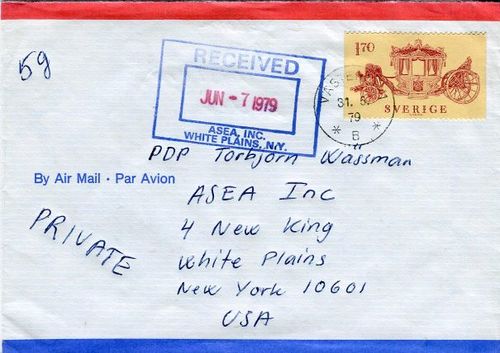 5g
RECEIVED
JUN -7 1979
ASEA, INC.
WHITE PLAINS, N.Y.
1.70
SVERIGE
31. 5.
79
* B *
PDP Torbjörn Wassman
By Air Mail · Par Avion
ASEA Inc
PRIVATE
4 New King
White Plains
New York 10601
USA